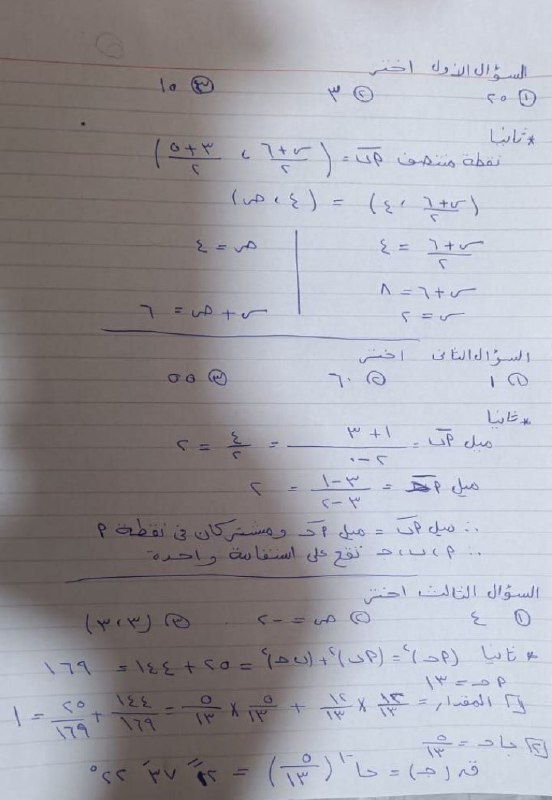 السؤال الأول اختر
① ٢٥ ② ٣ ③ ١٥
* ثانيا
نقطة منتصف أب = (س+٦/٢ ، ٣+٥/٢)
(س+٦/٢ ، ٤) = (٤ ، ص)
س+٦/٢ = ٤ | ص = ٤
س+٦ = ٨
س = ٢ | س + ص = ٦
السؤال الثانى اختر
① ١ ② ٦٠ ③ ٥٥
* ثانيا
ميل أب = ١+٣/٢-٠ = ٤/٢ = ٢
ميل أحـ = ٣-١/٣-٢ = ٢
∴ ميل أب = ميل أحـ ومشتركان فى نقطة أ
∴ أ ، ب ، حـ تقع على استقامة واحدة
السؤال الثالث اختر
① ٤ ② ص = -٢ ③ (٣،٣)
* ثانيا (أحـ)² = (أب)² + (ب حـ)² = ٢٥ + ١٤٤ = ١٦٩
أحـ = ١٣
[١] المقدار = ١٢/١٣ × ١٢/١٣ + ٥/١٣ × ٥/١٣ = ١٤٤/١٦٩ + ٢٥/١٦٩ = ١
[٢] جا حـ = ٥/١٣
ق (حـ) = حا⁻¹ (٥/١٣) = ٣٧ ٢٢°